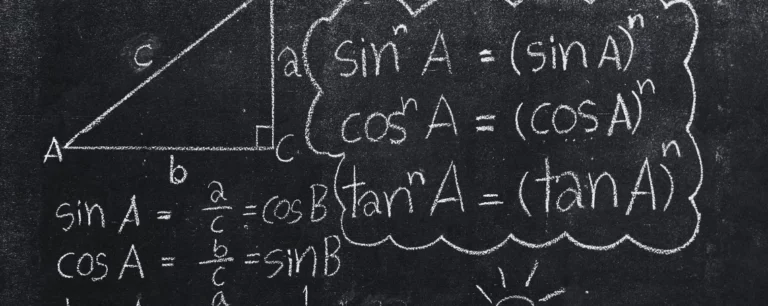 c
a
A
b
C
sinⁿ A = (sin A)ⁿ
cosⁿ A = (cos A)ⁿ
tanⁿ A = (tan A)ⁿ
sin A = a/c = cos B
cos A = b/c = sin B